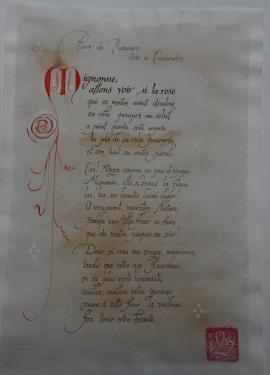 Pierre de Ronsard
Ode à Cassandre
Mignonne,
allons voir si la rose
qui ce matin avoit declose
sa robe de pourpre au soleil
a point perdu cette vesprée
les plis de sa robe pourprée
et son teint au votre pareil.
Las! Voyez comme en peu d'espace,
Mignonne, elle a dessus la place,
las, las, ses beautés laissé choir!
O vrayment marastre Nature,
Puisqu'une telle fleur ne dure
que du matin jusques au soir!
Donc, si vous me croyez, mignonne,
tandis que votre age fleuronne
en sa plus verte nouveauté,
cueillez, cueillez votre jeunesse:
comme à cette fleur la vieillesse
fera ternir votre beauté.